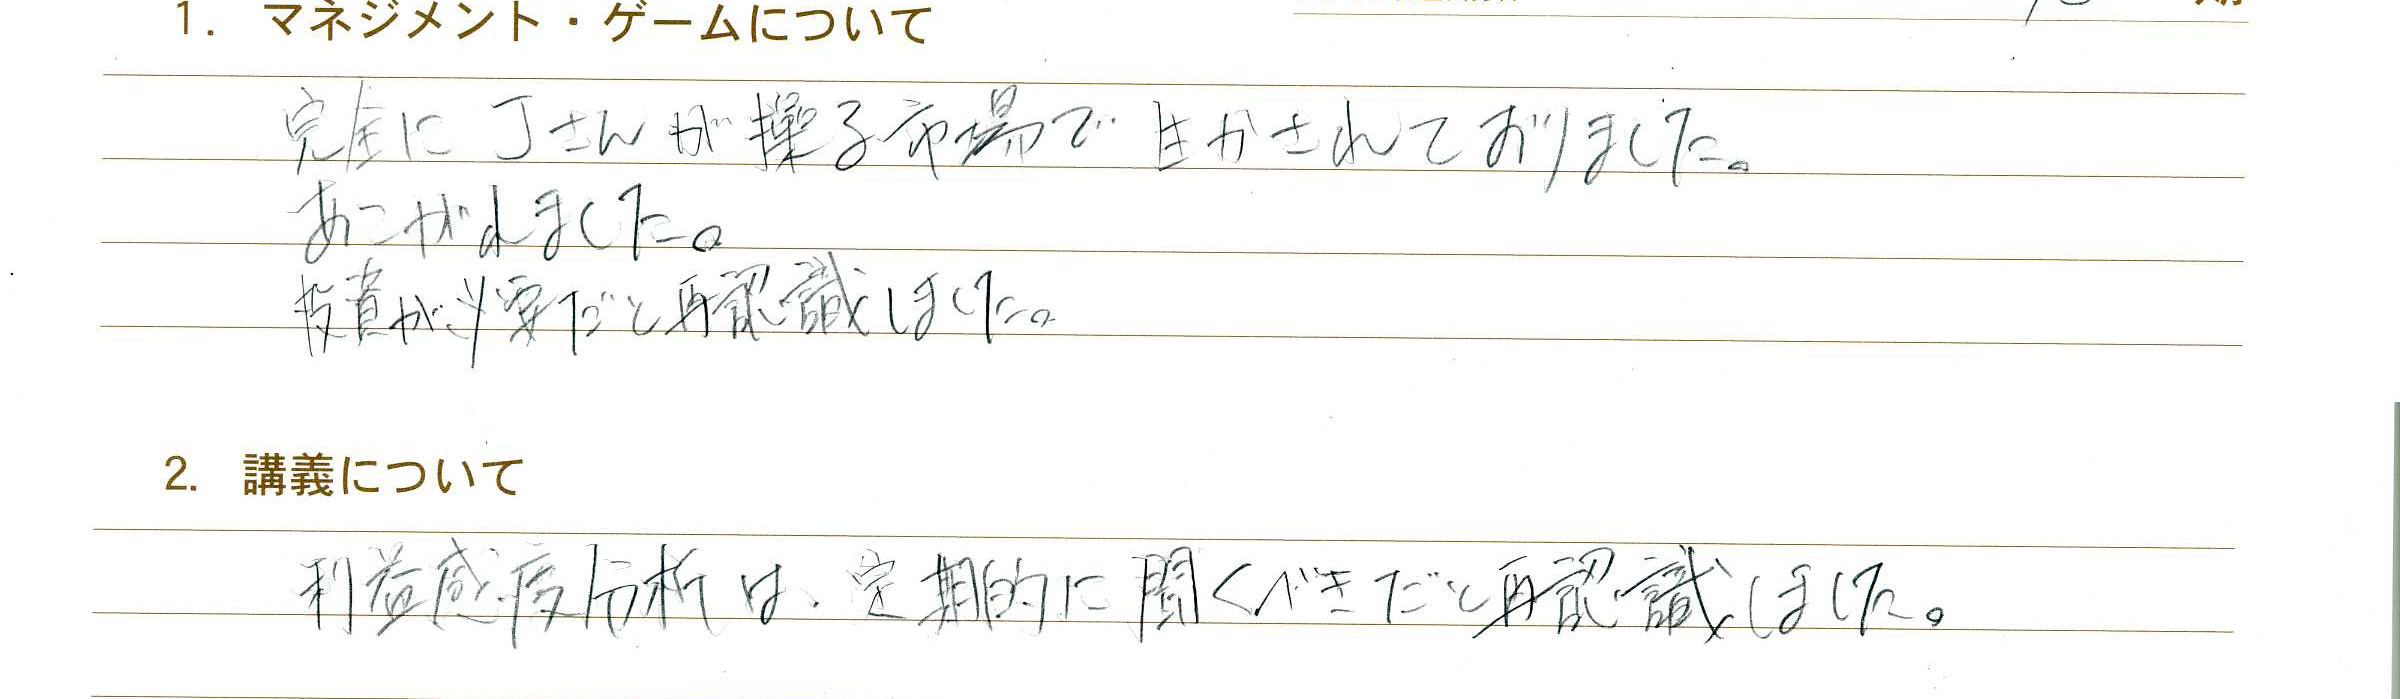 1. マネジメント・ゲームについて
完全にJさんが操る市場で生かされておりました。
あこがれました。
投資が必要だと再認識しました。
2. 講義について
利益感度分析は、定期的に聞くべきだと再認識しました。